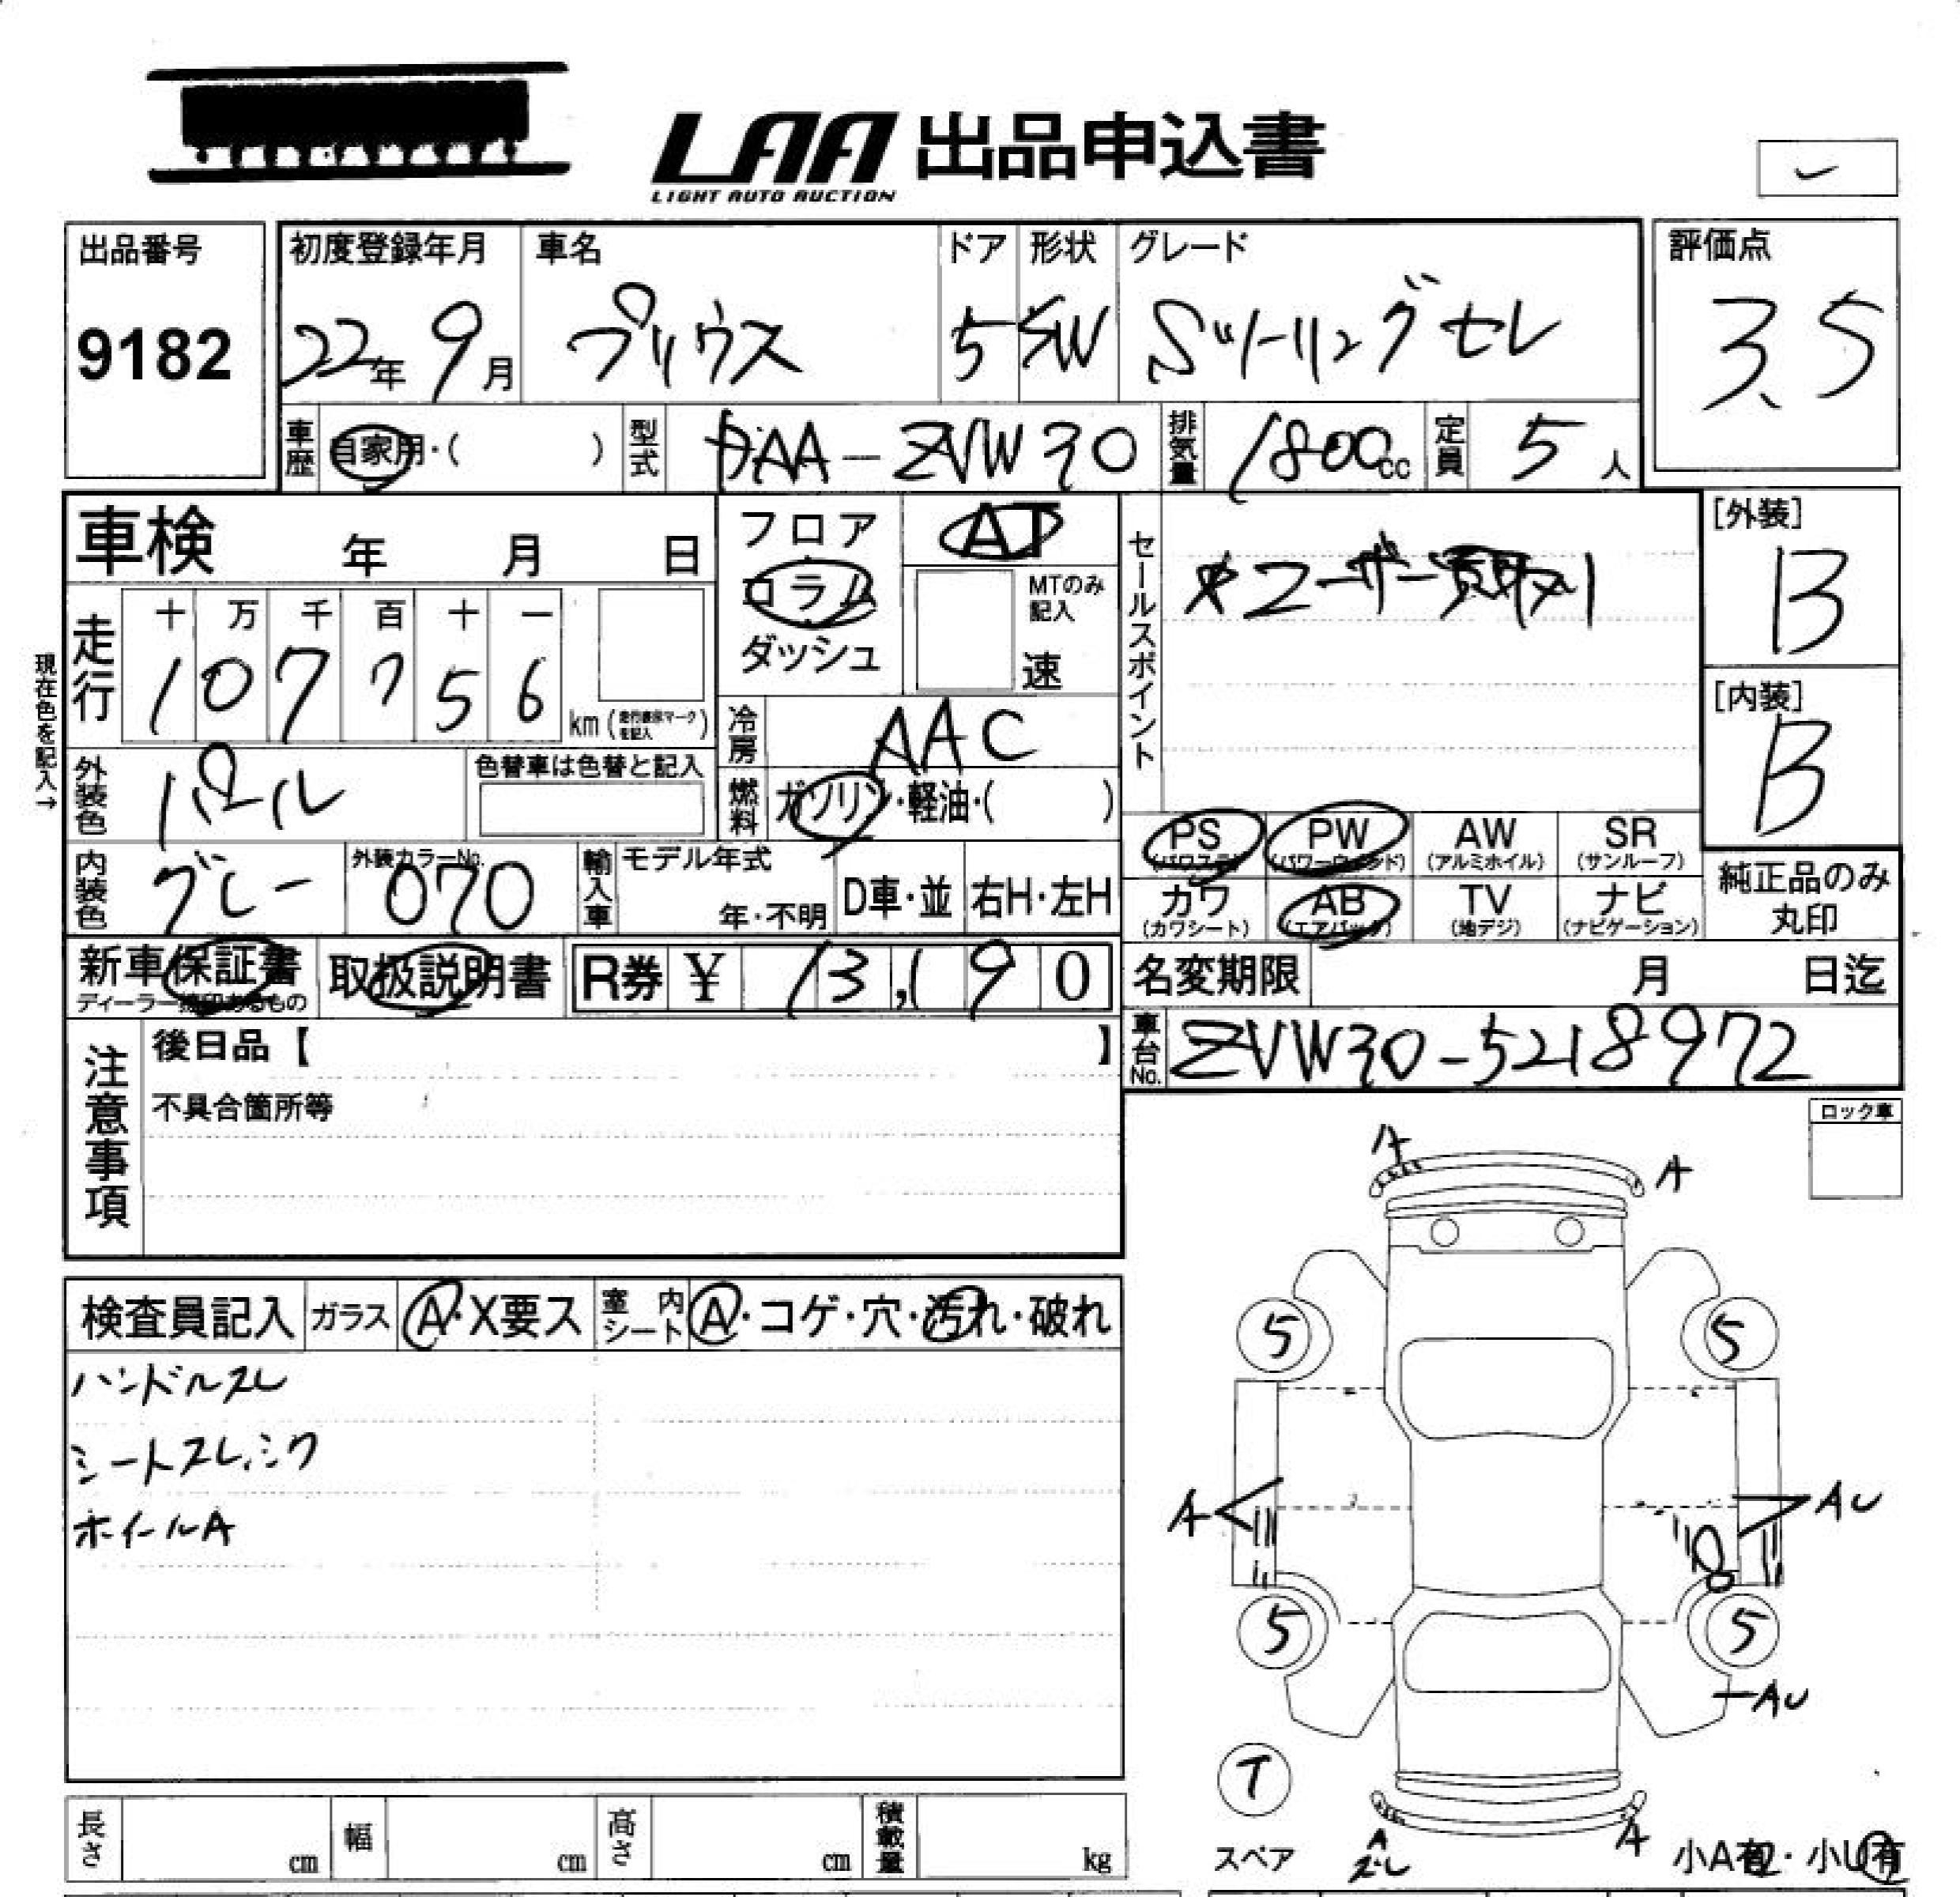 LAA 出品申込書
LIGHT AUTO AUCTION
出品番号 初度登録年月 車名 ドア 形状 グレード 評価点
9182 22年 9月 プリウス 5 SW Sツーリングセレ 3.5
車歴 自家用・( ) 型式 DAA-ZVW30 排気量 1800cc 定員 5人
車検 年 月 日
フロア AT
コラム MTのみ記入
ダッシュ 速
セールスポイント
★ユーザー買取り
[外装]
B
[内装]
B
現在色を記入→
走行 十 万 千 百 十 一
1 0 7 7 5 6 km (走行表示マークを記入)
冷房 AAC
外装色 パール 色替車は色替と記入
燃料 ガソリン・軽油・( )
PS (パワステ) PW (パワーウィンド) AW (アルミホイル) SR (サンルーフ)
内装色 グレー 外装カラーNo. 070 輸入車 モデル年式 年・不明 D車・並 右H・左H
カワ (カワシート) AB (エアバッグ) TV (地デジ) ナビ (ナビゲーション)
純正品のみ
丸印
新車保証書 取扱説明書 R券 ¥ 13,190
ディーラー捺印あるもの
名変期限 月 日迄
車台No. ZVW30-5218972
注意事項
後日品【 】
不具合箇所等
ロック車
A A
検査員記入 ガラス A・X要ス 室内シート A・コゲ・穴・汚れ・破れ
5 5
ハンドルスレ
シートスレ、シワ
ホイールA
A AU
5 5
AU
T
スペア
A
スレ
A
小A有・小U有
長さ cm 幅 cm 高さ cm 積載量 kg